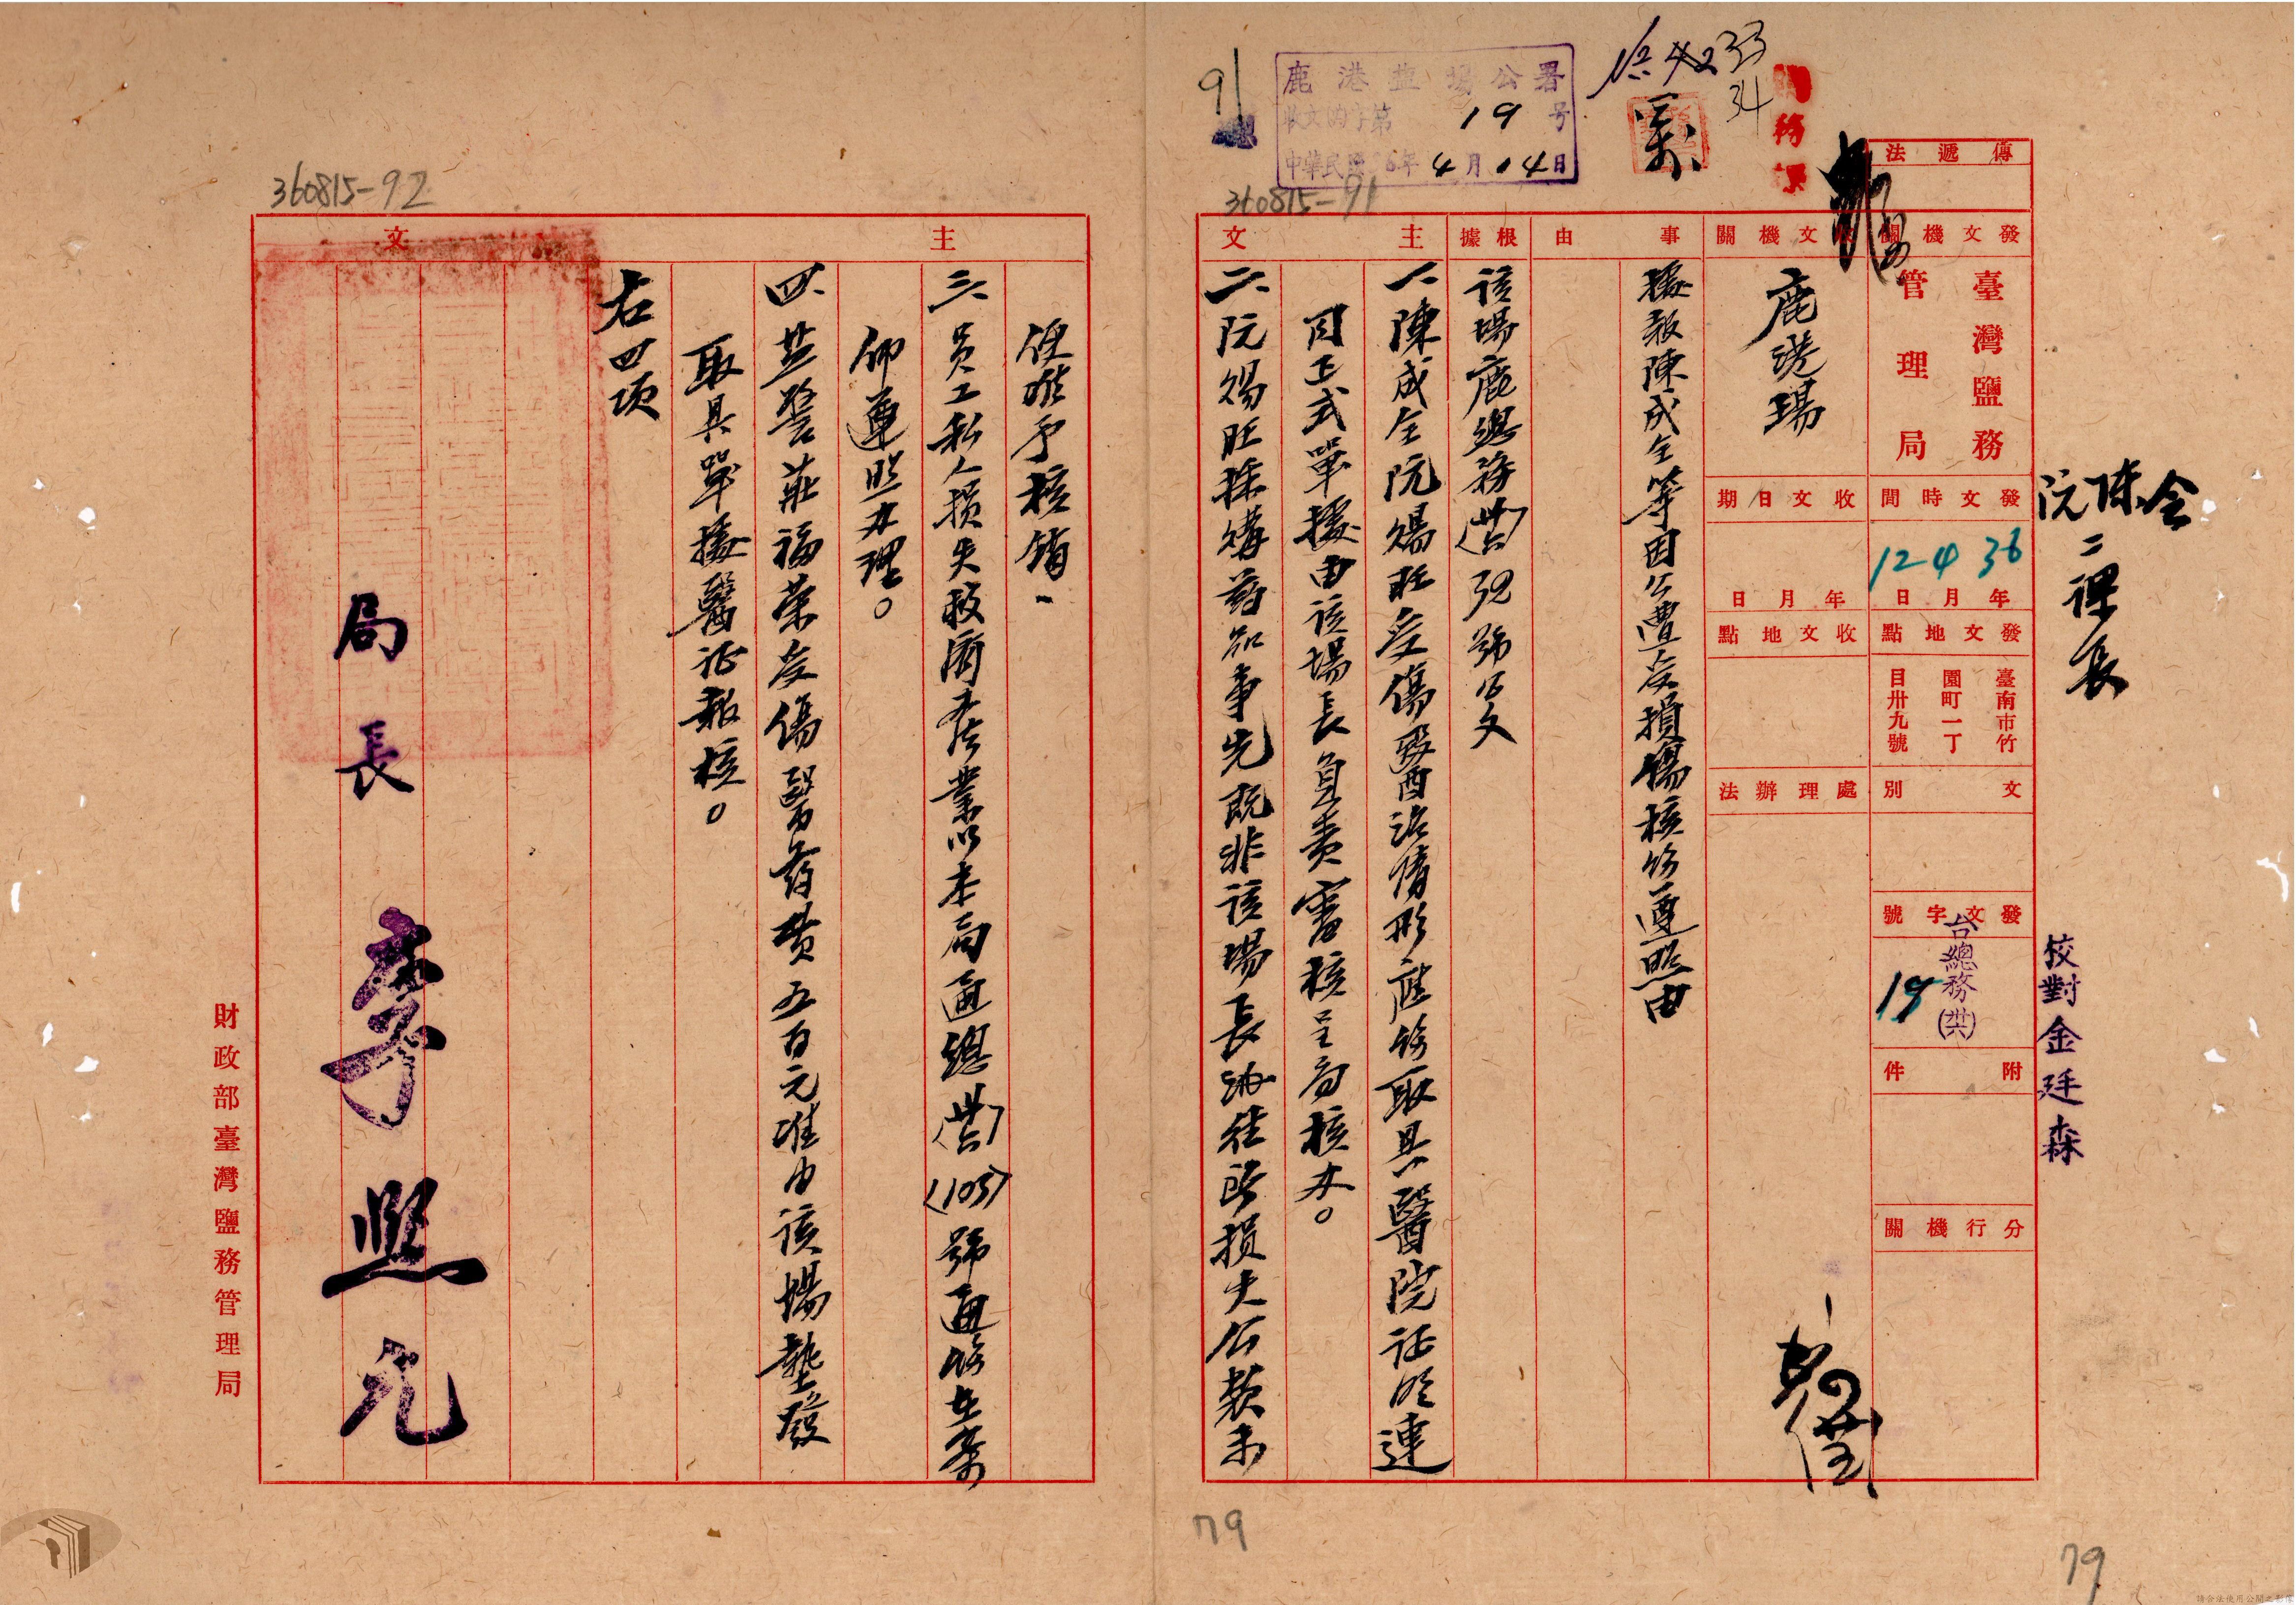 91
鹿港盐場公署
收文 字第 19 号
中華民國36年4月14日
33
34
360815-91
360815-92
傳遞法
發文機關
臺灣鹽務
管理局
發文時間
36 4 12
年月日
發文地點
臺南市竹
園町一丁
目卅九號
文別
發文字號
台總務(洪)
19
附件
分行機關
會
陳
阮
二課長
校對金廷森
收文機關
鹿港場
收文日期
年月日
收文地點
處理辦法
事由
據報陳成全等因公遭受損傷核飭遵照由
根據
該場鹿總務 32號公文
主文
一、陳成全阮賜旺受傷醫治情形應飭取具醫院証明連
同正式單據由該場長負責審核呈局核办。
二、阮賜旺採購葯品事先既非該場長派往所損失公款未
主文
便准予核銷、
三、員工私人損失救濟办法業以本局通總 (103)號通飭在案
仰遵照办理。
四、盐警莊福荣受傷醫药費五百元准由該場墊發
取具單據醫証報核。
右四項
局長 李熙允
財政部臺灣鹽務管理局
79
79